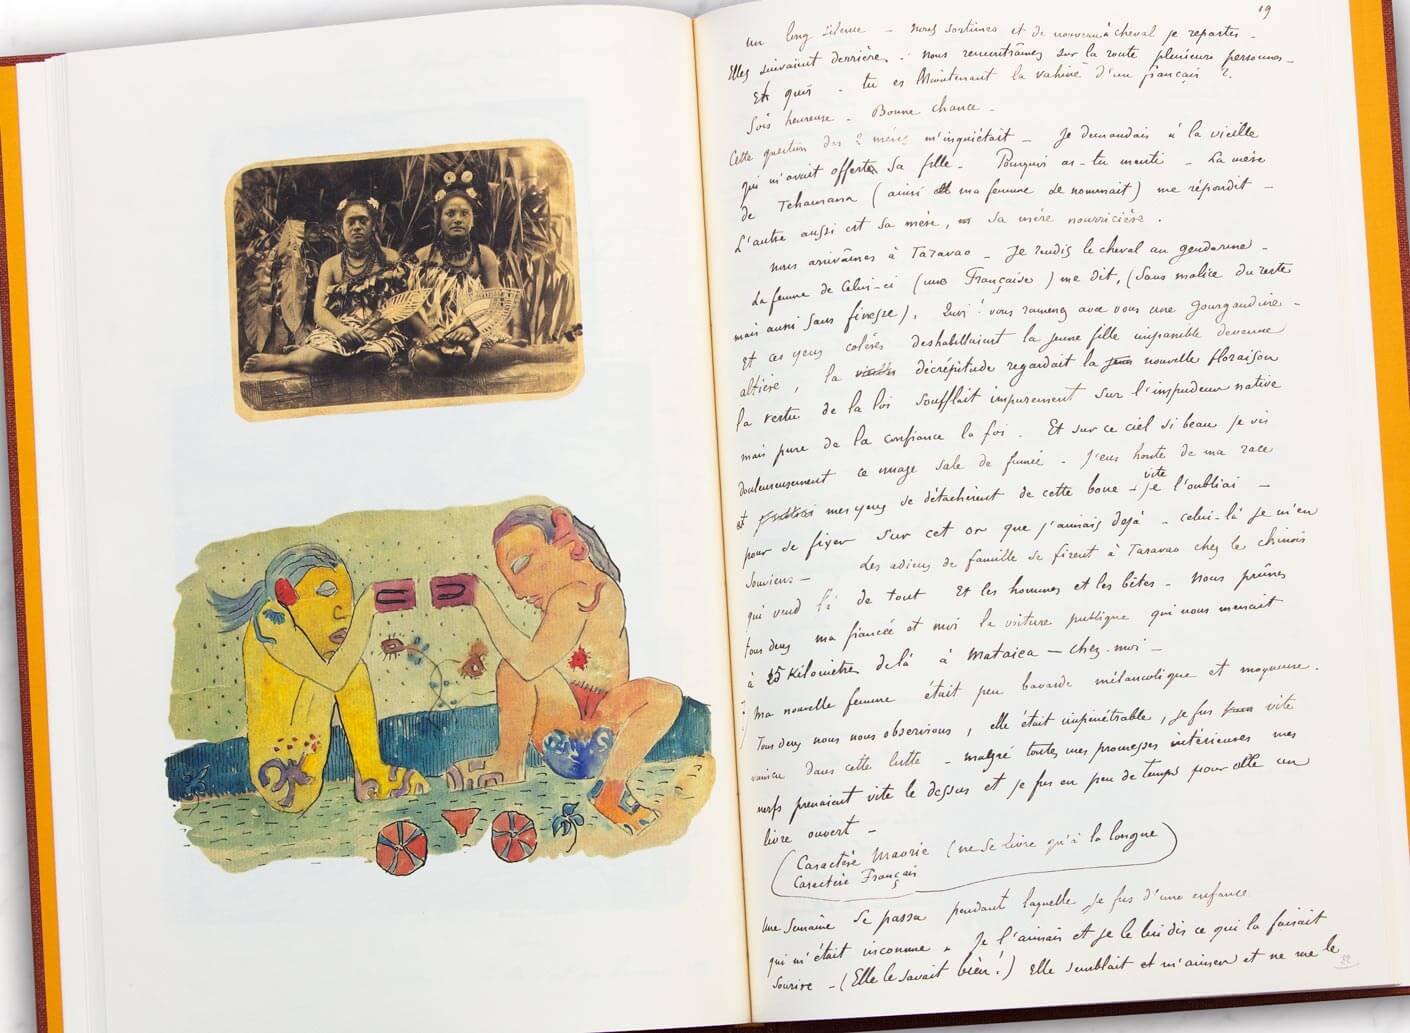 19
un long silence – nous sortîmes et de nouveau à cheval je repartis –
Elles suivaient derrière. Nous rencontrâmes sur la route plusieurs personnes –
Et quoi – tu es Maintenant la vahiné d'un français ?
Sois heureuse – Bonne chance –
Cette question des 2 mères m'inquiétait – Je demandais à la vieille
qui m'avait offerte sa fille – Pourquoi as-tu menti – La mère
de Tehamana (ainsi ma femme se nommait) me répondit –
L'autre aussi est sa mère, sa mère nourricière.
nous arrivâmes à Taravao – Je rendis le cheval au gendarme –
La femme de Celui-ci (une Française) me dit, (Sans malice du reste
mais aussi Sans finesse), vous ramenez avec vous une gourgandine –
Et ces yeux colères deshabillaient la jeune fille impassible devenue
altière, la vieille décrépitude regardait la nouvelle floraison
la vertu de la loi soufflait impurement sur l'impudeur native
mais pure de la confiance la foi – Et sur ce ciel si beau je vis
douloureusement ce nuage sale de fumée – J'eus honte de ma race
et mes yeux se détachèrent de cette boue – vite je l'oubliai –
pour se fixer sur cet or que j'aimais déjà – celui-là je m'en
souviens – Les adieux de famille se firent à Taravao chez le chinois
qui vend là de tout Et les hommes et les bêtes – Nous prîmes
tous deux ma fiancée et moi la voiture publique qui nous menait
à 25 Kilomètres delà à Mataiea – chez moi –
Ma nouvelle femme était peu bavarde mélancolique et moqueuse.
Tous deux nous nous observions, elle était impénétrable, je fus vite
vaincu dans cette lutte – malgré toutes mes promesses intérieures mes
nerfs prenaient vite le dessus et je fus en peu de temps pour elle un
livre ouvert –
(Caractère Maorie (ne se livre qu'à la longue)
Caractère Français
Une Semaine se passa pendant laquelle je fus d'une enfance
qui m'était inconnue. Je l'aimais et je le lui dis ce qui la faisait
sourire – (Elle le savait bien !) Elle semblait et m'aimer et ne me le